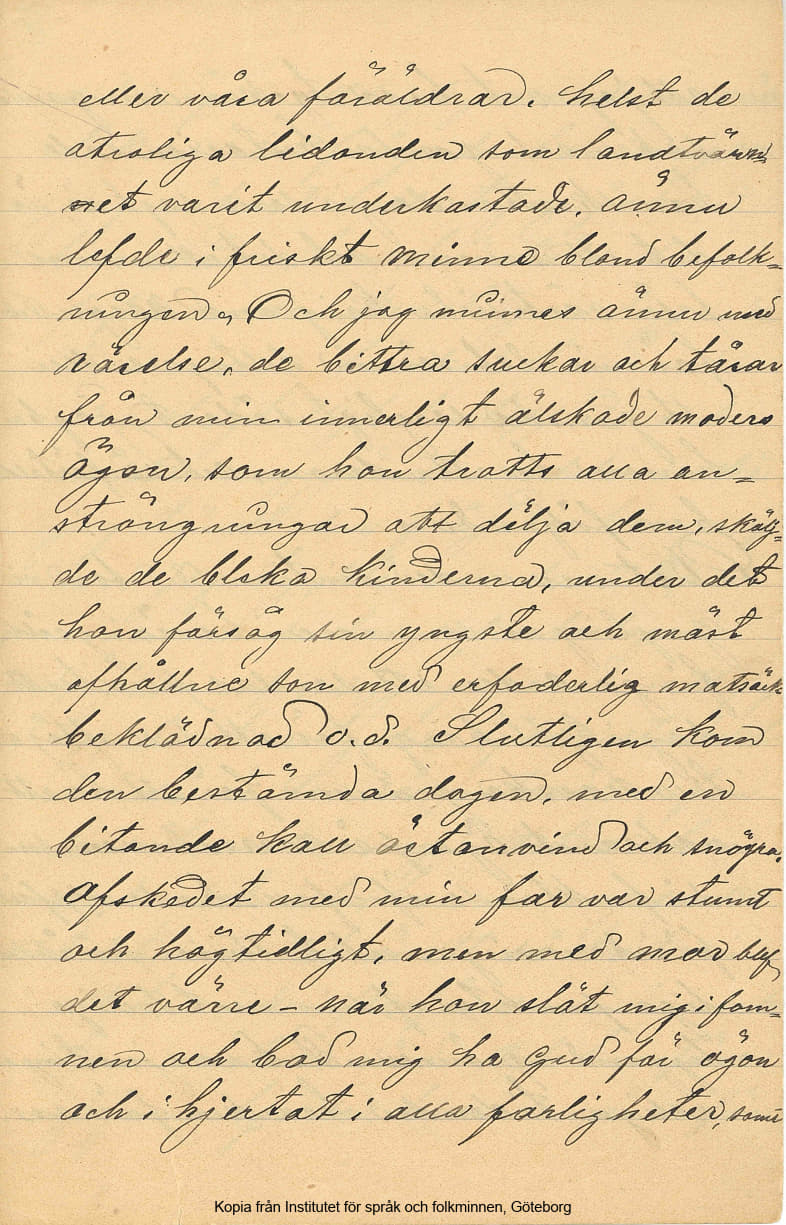 eller våra föräldrar. helst de
otroliga lidanden som landtvärn-
et varit underkastade. ännu
lefde i friskt minne bland befolk=
ningen, Och jag minnes ännu med
rörelse, de bittra suckar och tårar
från min innerligt älskade moders
ögon, som hon trotts alla an=
strängningar att dölja dem, skölj=
de de bleka kinderna, under det
hon försåg sin yngste och mäst
afhållne son med erfoderlig matsäck
beklädnad o.d. Slutligen kom
den bestämda dagen, med en
bitande kall östanvind och snögra.
Afskedet med min far var stumt
och högtidligt, men med mor blef
det värre - när hon slöt mig i fam=
nen och bad mig ha Gud för ögon
och i hjertat i alla farligheter, som
Kopia från Institutet för språk och folkminnen, Göteborg